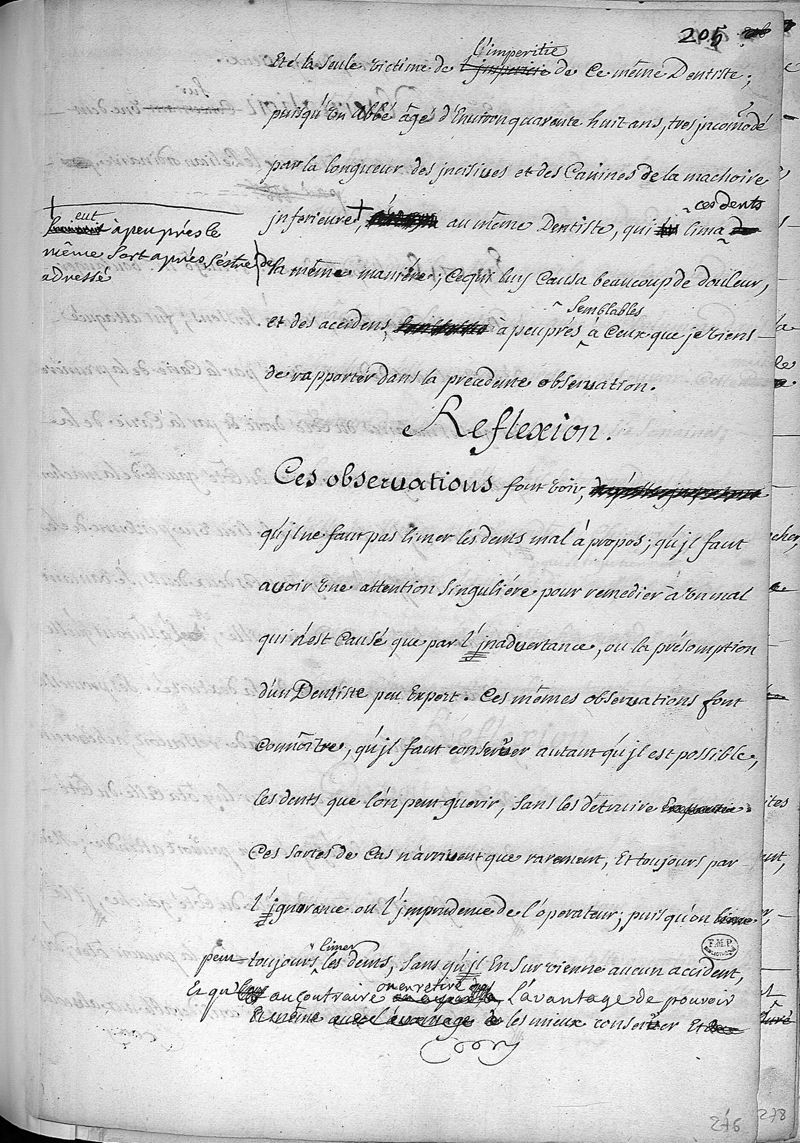 205
l'imperitie
Eté la seule victime de l'jmpericie de ce même Dentiste;
puisqu'un abbé âgés d'Environ quarente huit ans, tres jncomodé
par la longueur des jncisives et des Canines de la machoire
ces dents
jnferieure, au même Dentiste, qui lima
eut à peu prés le
même sort aprés s'éstre
adressé
de la même maniére; ce qui luy causa beaucoup de douleur,
semblables
et des accidens à peu prés à ceux que je viens
de rapporter dans la précedente observation.
Reflexion.
Ces observations font voir,
qu'jl ne faut pas limer les dents mal à propos; qu'jl faut
avoir une attention singuliére pour remedier à un mal
qui n'est causé que par l'jnadvertance, ou la présomption
d'un Dentiste peu Expert. Ces mêmes observations font
connoître, qu'jl faut conserver autant qu'jl est possible,
les dents que l'on peut guerir, sans les détruire
Ces sortes de cas n'arrivent que rarement, Et toujours par
l'jgnorance ou l'jmprudence de l'operateur; puisqu'on lime
limer
peut toujours les dents, sans qu'jl En survienne aucun accident,
on en retire
Et qu' au contraire L'avantage de pouvoir
Et même avec l'avantage de les mieux conserver Et
F.M.P.
276
278